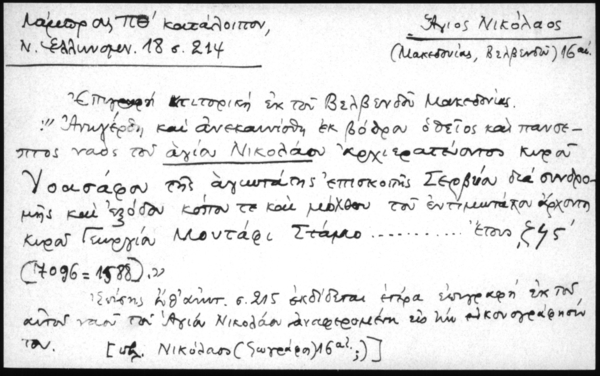 Λάμπρος ΠΘ' κατάλοιπον,
Ν. Ελλινομν. 18 σ. 214
Άγιος Νικόλαος
(Μακεδονίας, Βελβενδού) 16 αι.
Επιγραφή κτιτορική εκ του Βελβενδού Μακεδονίας.
"Ανηγέρθη και ανεκαινίσθη εκ βάθρου ο θείος και πανσε-
πτος ναός του αγίου Νικολάου αρχιερατεύοντος κυρού
Ιοασάφου της αγιωτάτης επισκοπής Σερβίων δια συνδρο-
μής και εξόδου κόπου τε και μόχθου του εντιμωτάτου άρχοντη
κυρού Γεωργίου Μουτάφι Στάμο .......... Έτους ,ζ 4 ς'
(7096 = 1588).»
Επίσης ένθ' ανωτ. σ. 215 εκδίδεται ετέρα επιγραφή εκ του
αυτού ναού του Αγίου Νικολάου αναφερομένη εις την εικονογράφησίν
του. [βλ. Νικόλαος (ζωγράφος) 16 αι. ;)]